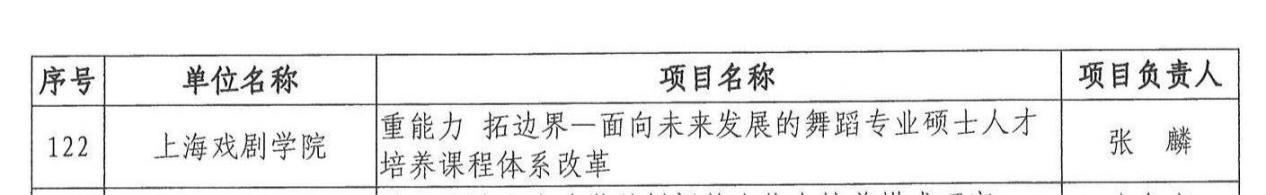 序号 单位名称 项目名称 项目负责人
122 上海戏剧学院 重能力 拓边界—面向未来发展的舞蹈专业硕士人才
培养课程体系改革 张 麟